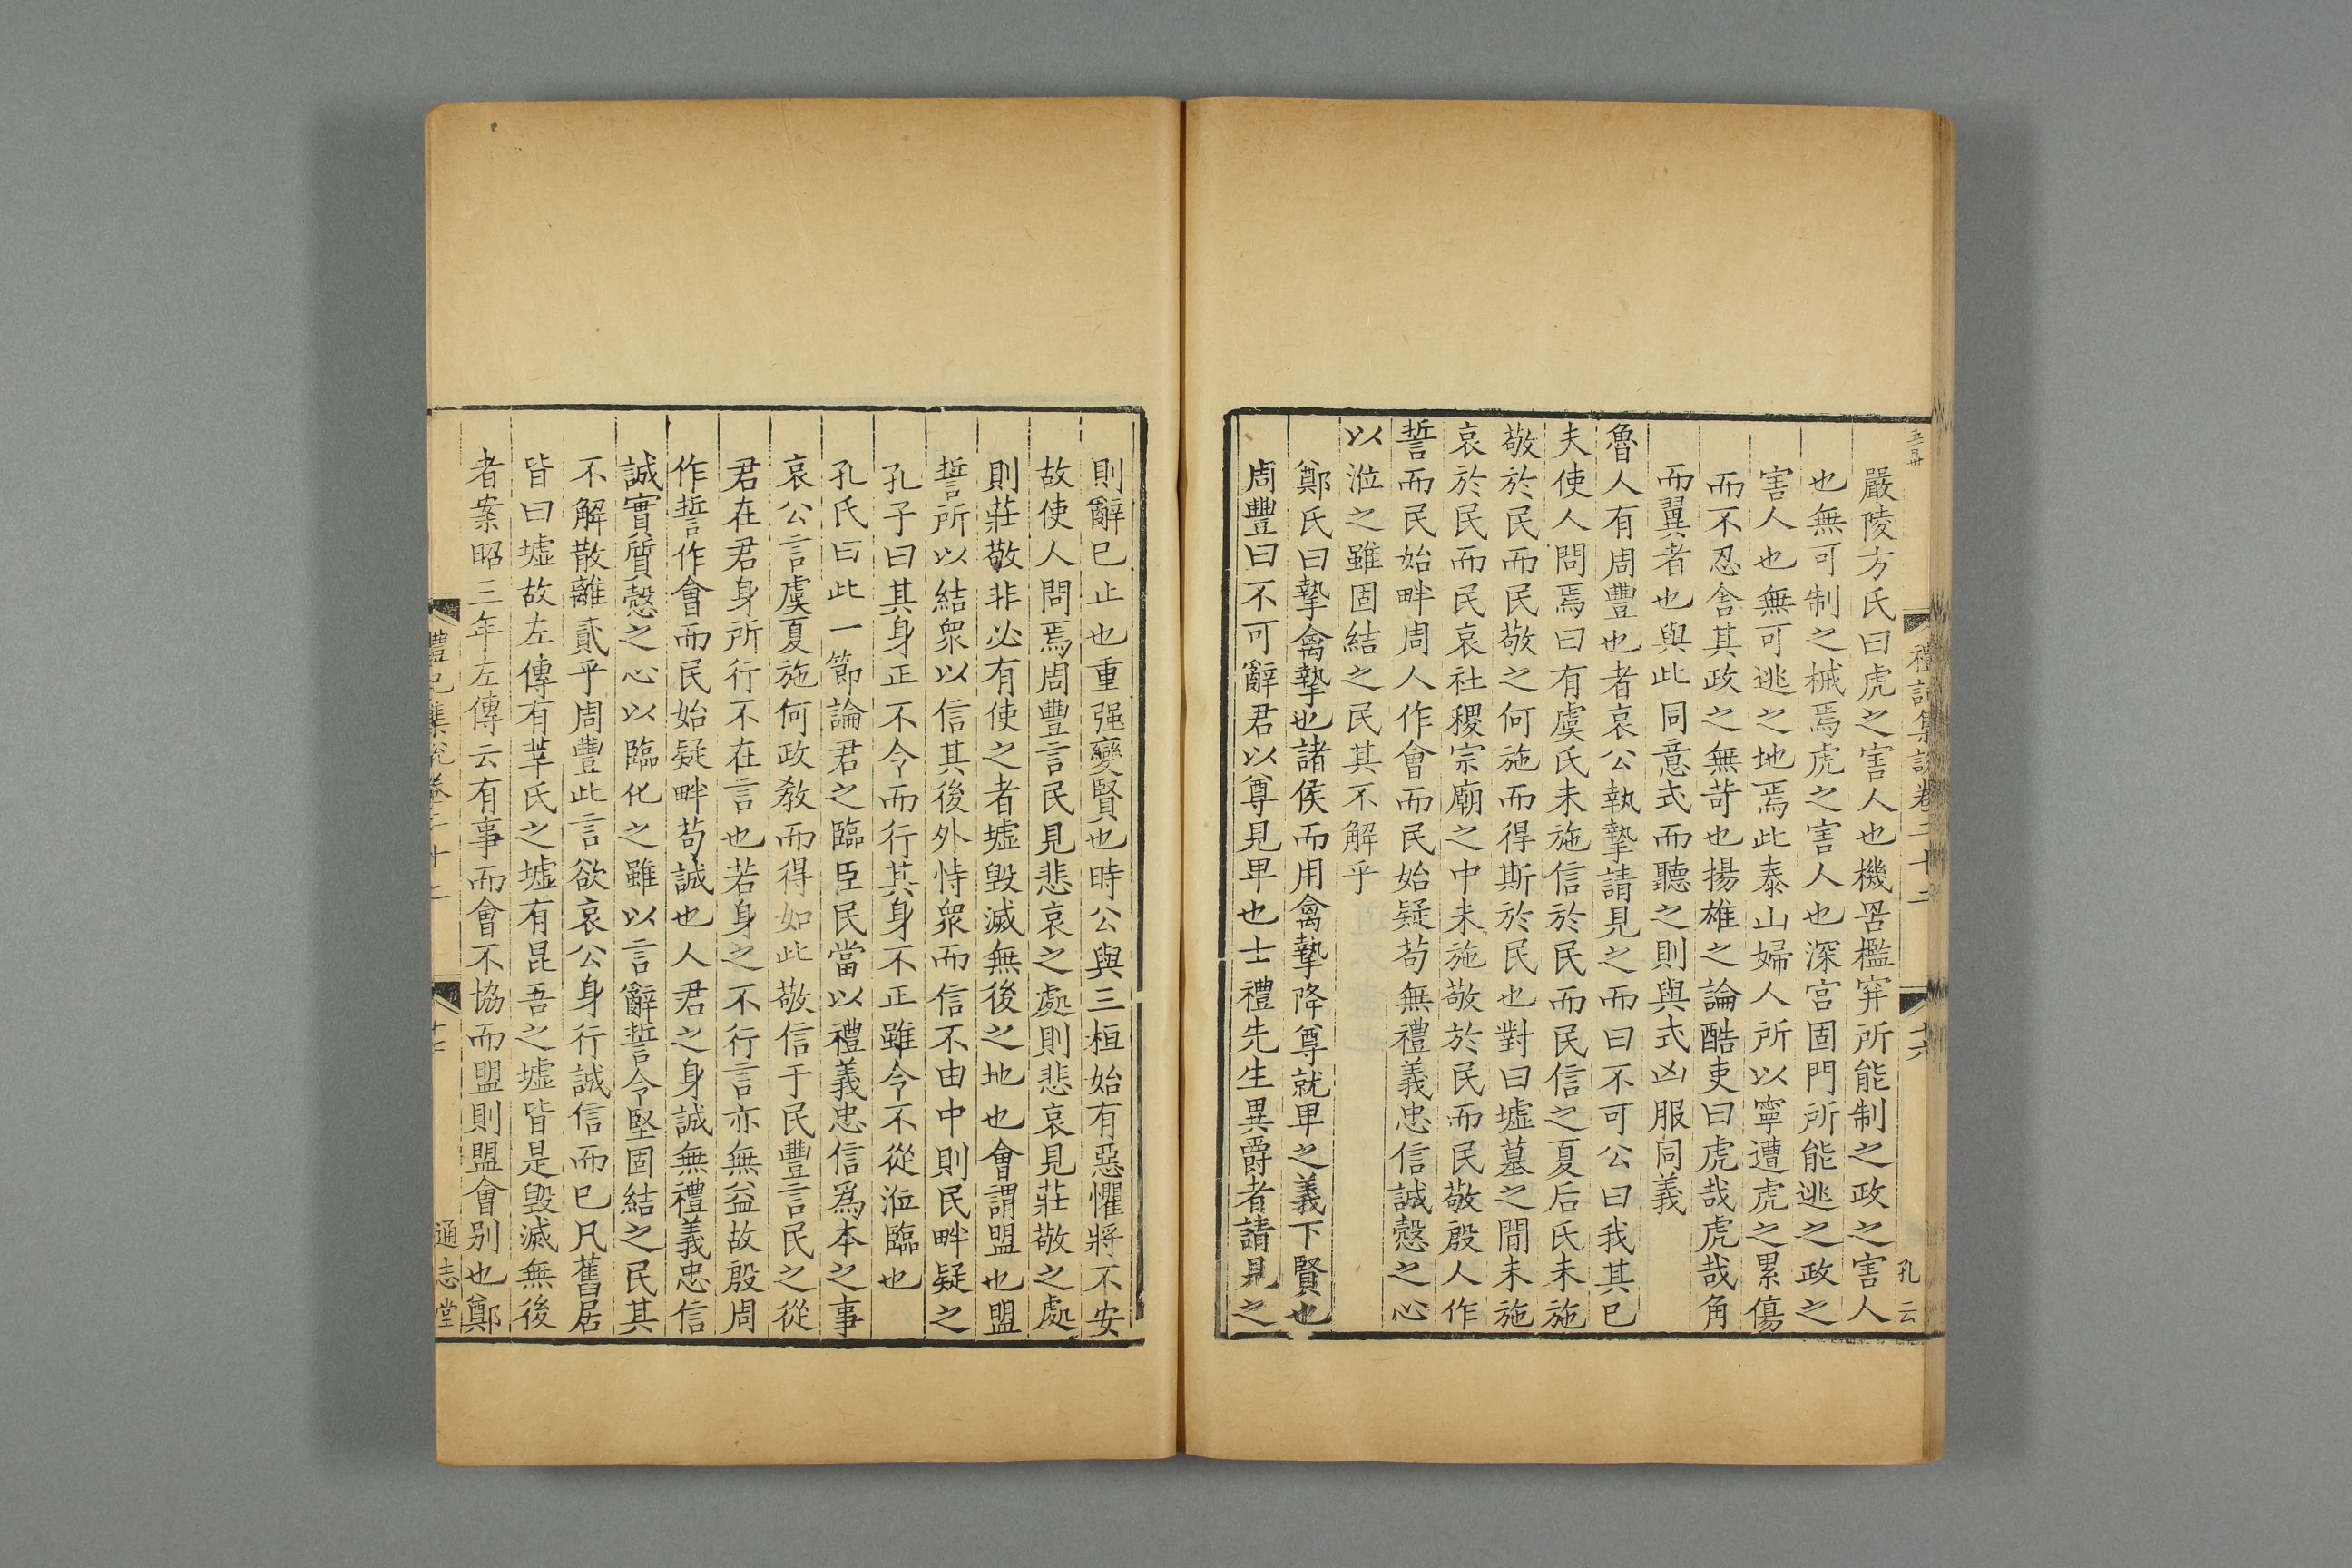 嚴陵方氏曰虎之害人也機罟檻穽所能制之政之害人
也無可制之械焉虎之害人也深宫固門所能逃之政之
害人也無可逃之地焉此泰山婦人所以寧遭虎之累傷
而不忍舍其政之無苛也揚雄之論酷吏曰虎哉虎哉角
而翼者也與此同意式而聽之則與式凶服同義
魯人有周豐也者哀公執摯請見之而曰不可公曰我其已
夫使人問焉曰有虞氏未施信於民而民信之夏后氏未施
敬於民而民敬之何施而得斯於民也對曰墟墓之間未施
哀於民而民哀社稷宗廟之中未施敬於民而民敬殷人作
誓而民始畔周人作會而民始疑苟無禮義忠信誠慤之心
以涖之雖固結之民其不解乎
鄭氏曰摯禽摯也諸侯而用禽摯降尊就卑之義下賢也
周豐曰不可辭君以尊見卑也士禮先生異爵者請見之
則辭已止也重强變賢也時公與三桓始有惡懼將不安
故使人問焉周豐言民見悲哀之處則悲哀見莊敬之處
則莊敬非必有使之者墟毁滅無後之地也會謂盟也盟
誓所以結衆以信其後外恃衆而信不由中則民畔疑之
孔子曰其身正不令而行其身不正雖令不從涖臨也
孔氏曰此一節論君之臨臣民當以禮義忠信爲本之事
哀公言虞夏施何政教而得如此敬信于民豐言民之從
君在君身所行不在言也若身之不行言亦無益故殷周
作誓作會而民始疑畔苟誠也人君之身誠無禮義忠信
誠實質慤之心以臨化之雖以言辭誓令堅固結之民其
不解散離貳乎周豐此言欲哀公身行誠信而已凡舊居
皆曰墟故左傳有莘氏之墟有昆吾之墟皆是毁滅無後
者案昭三年左傳云有事而會不協而盟則盟會别也鄭
禮記集說卷二十二
十七
通志堂